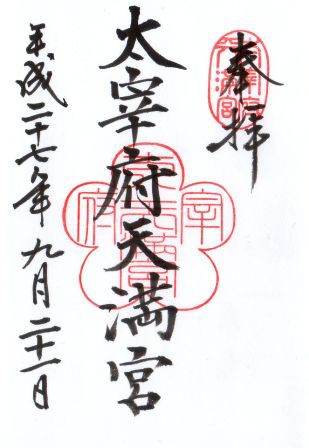 奉拝
太宰府天満宮
平成二十七年九月二十一日